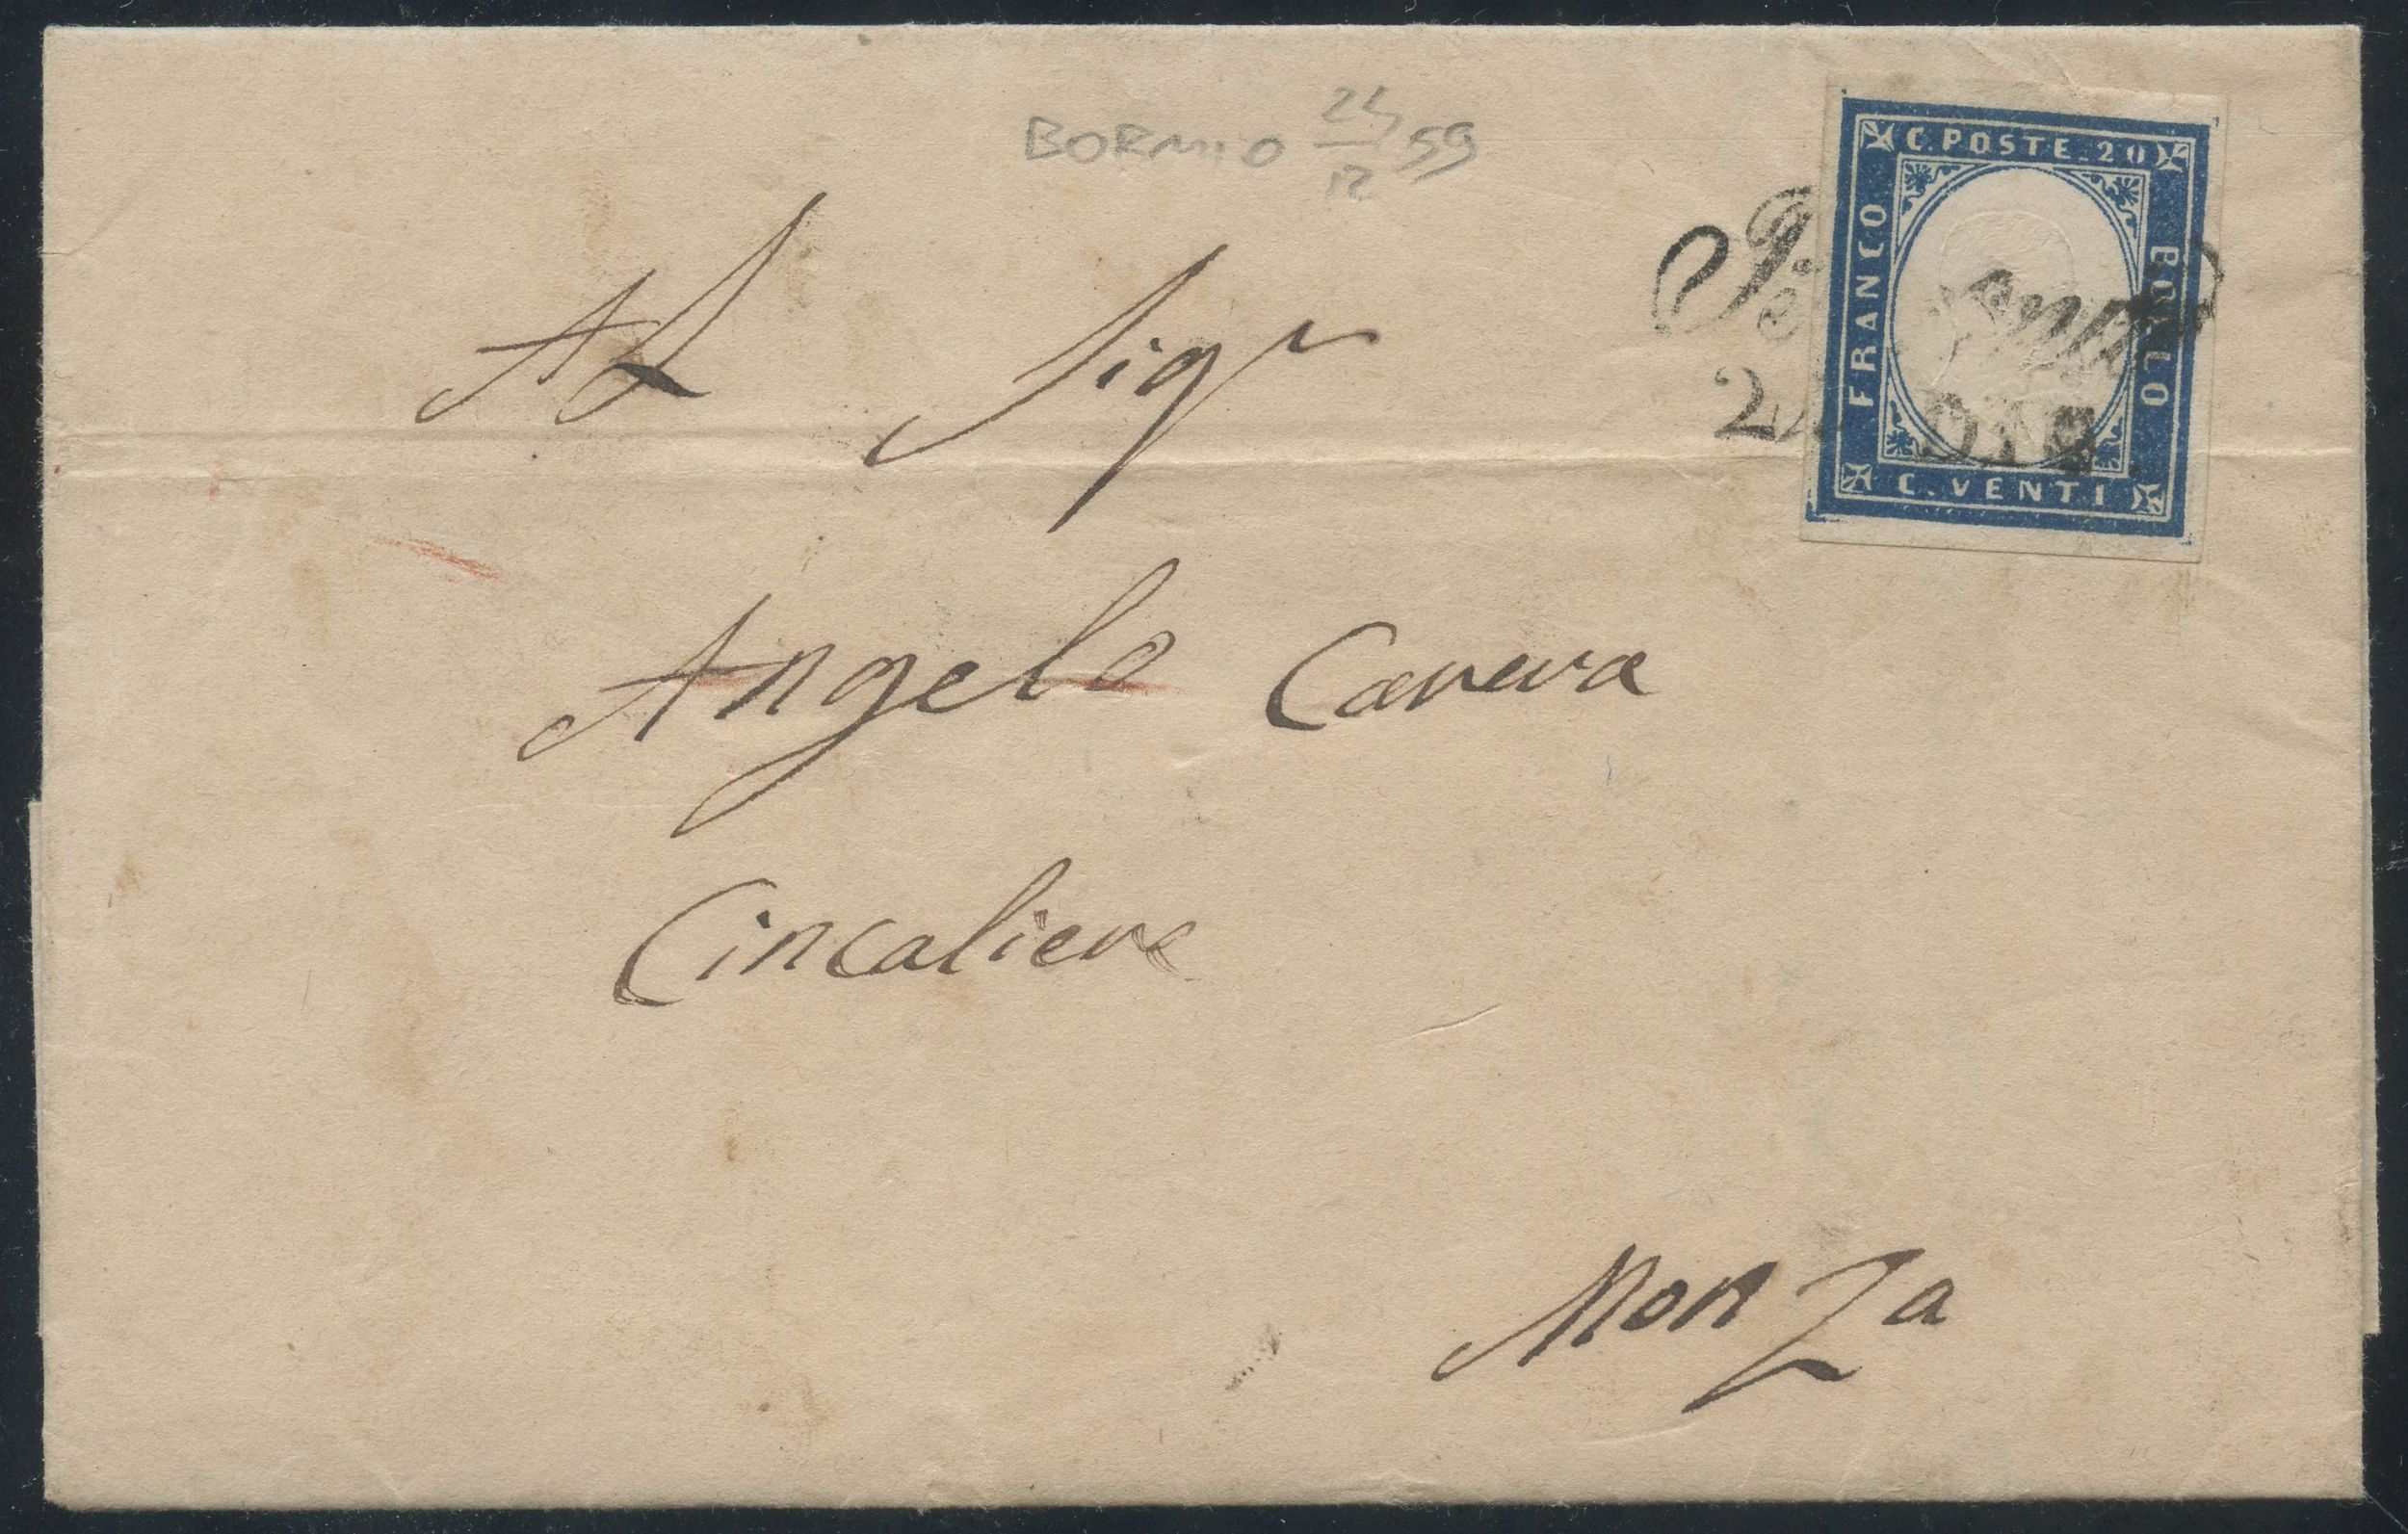 BORMIO 24/12 59
C. POSTE. 20
FRANCO
BOLLO
C. VENTI
DIC.
Al Sigr
Angelo Caneva
Cincaliere
Monza